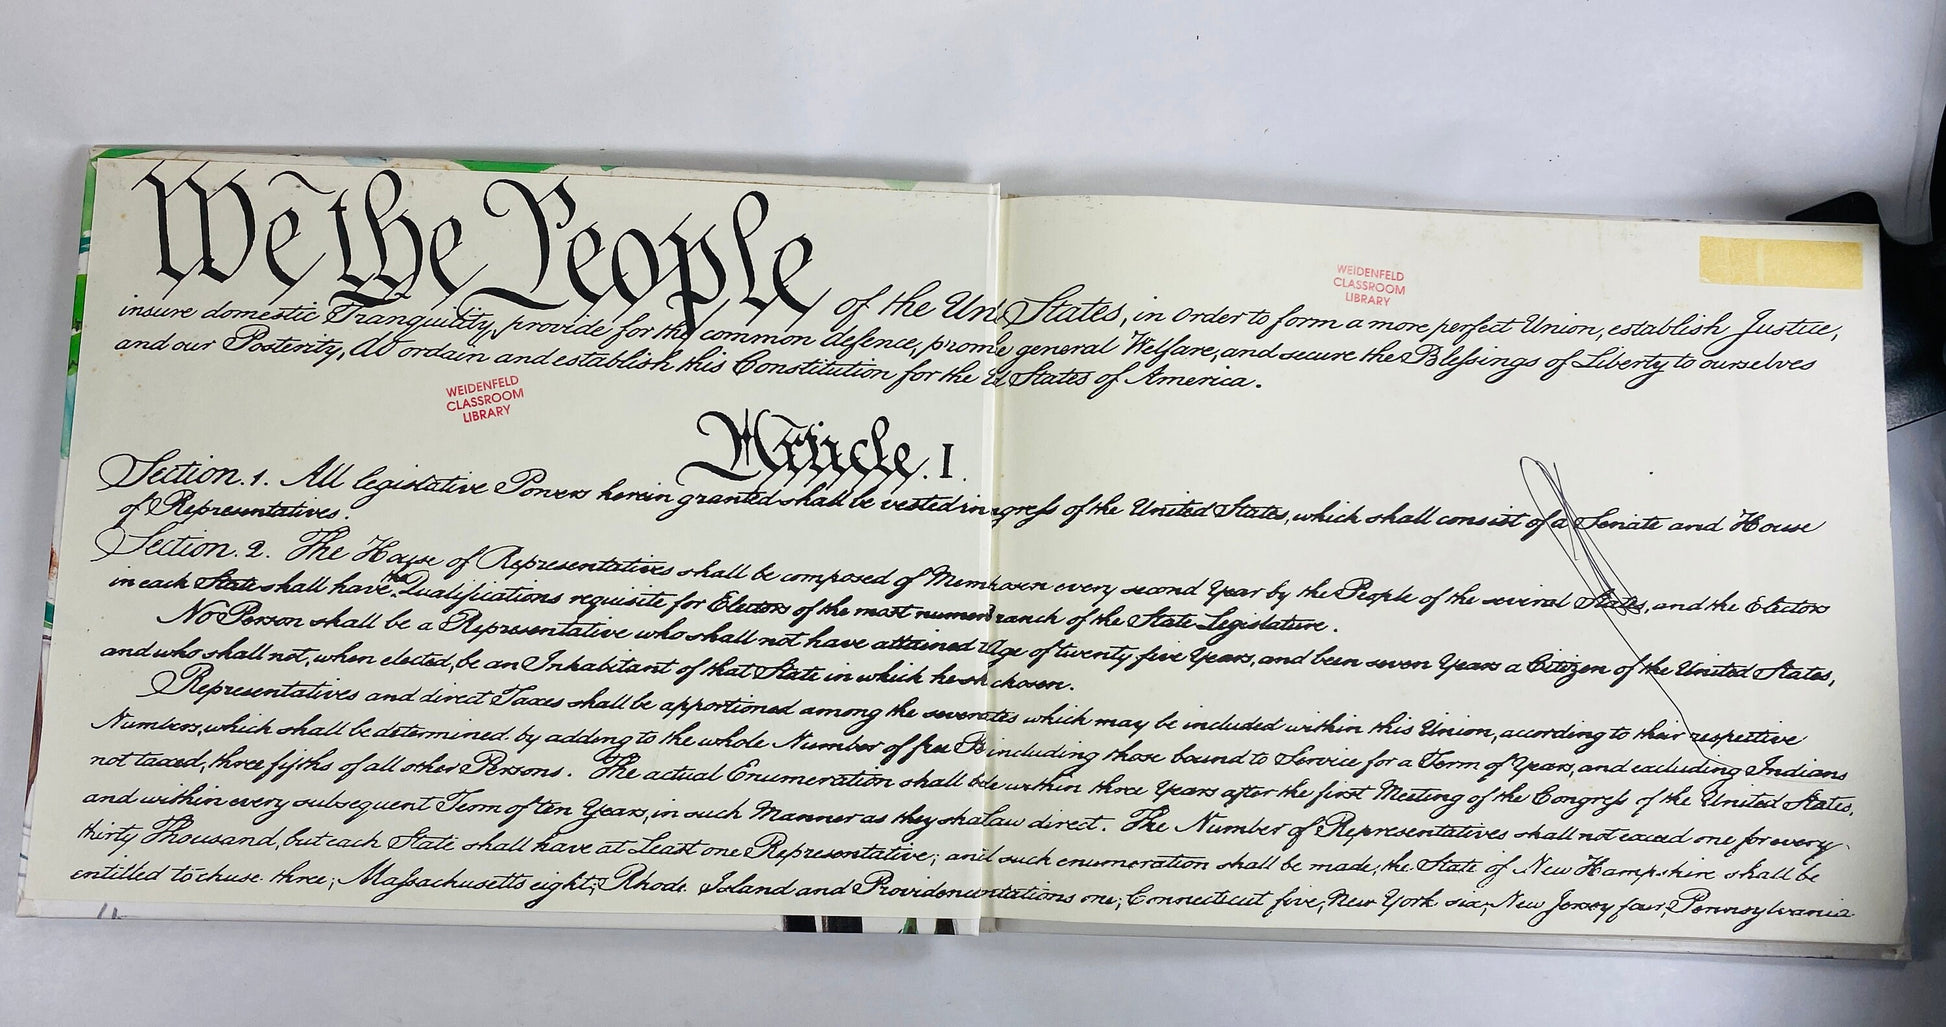 We the People of the Un States, in order to form a more perfect Union, establish Justice,
insure domestic Tranquility, provide for the common defence, promo general Welfare, and secure the Blessings of Liberty to ourselves
and our Posterity, do ordain and establish this Constitution for the U States of America.
WEIDENFELD
CLASSROOM
LIBRARY
WEIDENFELD
CLASSROOM
LIBRARY
Article. I.
Section. 1. All legislative Powers herein granted shall be vested in ngress of the United States, which shall consist of a Senate and House
of Representatives.
Section. 2. The House of Representatives shall be composed of Mem hosen every second Year by the People of the several States, and the Electors
in each State shall have the Qualifications requisite for Electors of the most numer ranch of the State Legislature.
No Person shall be a Representative who shall not have attained Age of twenty five Years, and been seven Years a Citizen of the United States,
and who shall not, when elected, be an Inhabitant of that State in which he sh chosen.
Representatives and direct Taxes shall be apportioned among the several tes which may be included within this Union, according to their respective
Numbers, which shall be determined by adding to the whole Number of free Pe including those bound to Service for a Term of Years, and excluding Indians
not taxed, three fifths of all other Persons. The actual Enumeration shall be de within three Years after the first Meeting of the Congress of the United States,
and within every subsequent Term of ten Years, in such Manner as they shal Law direct. The Number of Representatives shall not exceed one for every
thirty Thousand, but each State shall have at Least one Representative; and such enumeration shall be made, the State of New Hampshire shall be
entitled to chuse three, Massachusetts eight, Rhode Island and Providence ntations one, Connecticut five, New York six, New Jersey four, Pennsylvania